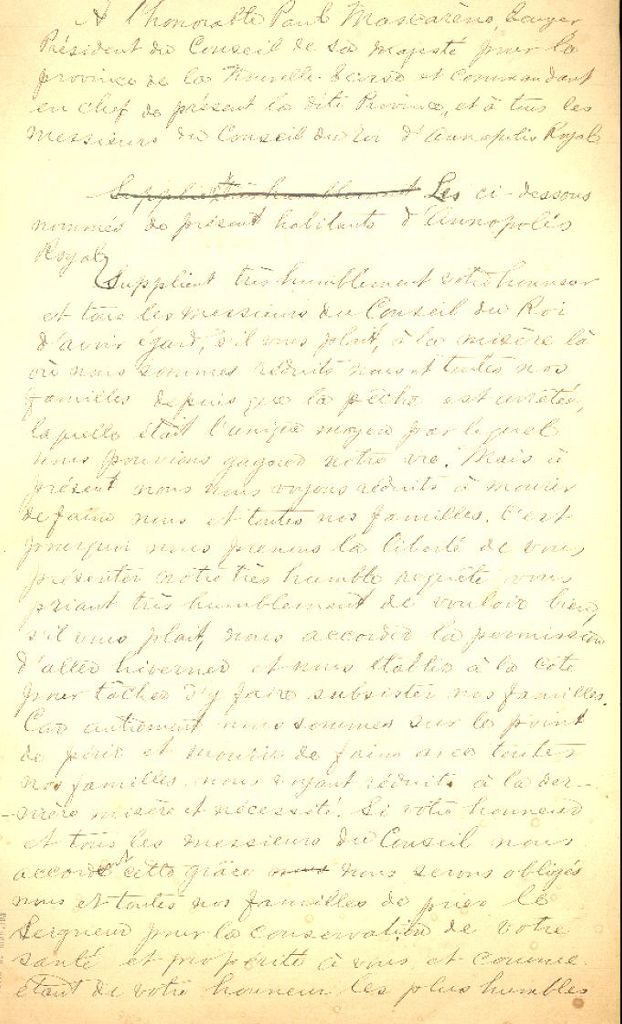 A l'honorable Paul Mascarène, Ecuyer
Président du Conseil de Sa Majesté pour la
province de la Nouvelle-Ecosse et Commandant
en chef de présent la dite Province, et à tous les
messieurs du Conseil du Roi d'Annapolis Royal
Supplient très humblement Les ci-dessous
nommés de présent habitants d'Annapolis
Royal
Supplient très humblement votre honneur
et tous les messieurs du Conseil du Roi
d'avoir égard, s'il vous plait, à la misère là
où nous sommes réduits nous et toutes nos
familles depuis que la pêche est arrêtée,
laquelle était l'unique moyen par lequel
nous pouvions gagner notre vie. Mais à
présent nous nous voyons réduits à mourir
de faim nous et toutes nos familles. C'est
pourquoi nous prenons la liberté de vous
présenter notre très humble requête vous
priant très humblement de vouloir bien,
s'il vous plait, nous accorder la permission
d'aller hiverner et nous établir à la côte
pour tâcher d'y faire subsister nos familles.
Car autrement nous sommes sur le point
de périr et mourir de faim avec toutes
nos familles nous voyant réduits à la der-
-nière misère et nécessité. Si votre honneur
et tous les messieurs du Conseil nous
accordent cette grâce nous nous serons obligés
nous et toutes nos familles de prier le
Seigneur pour la conservation de votre
santé et propérité à vous et comme
étant de votre honneur les plus humbles